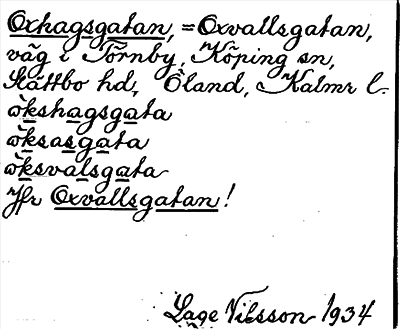 Oxhagsgatan, =Oxvallsgatan,
väg i Törnby, Köping sn,
Slättbo hd, Öland, Kalmr l.
ẁkshagsgata
ẁksasgata
ẁksvalsgata
Jfr Oxvallsgatan!
Lage Nilsson 1934